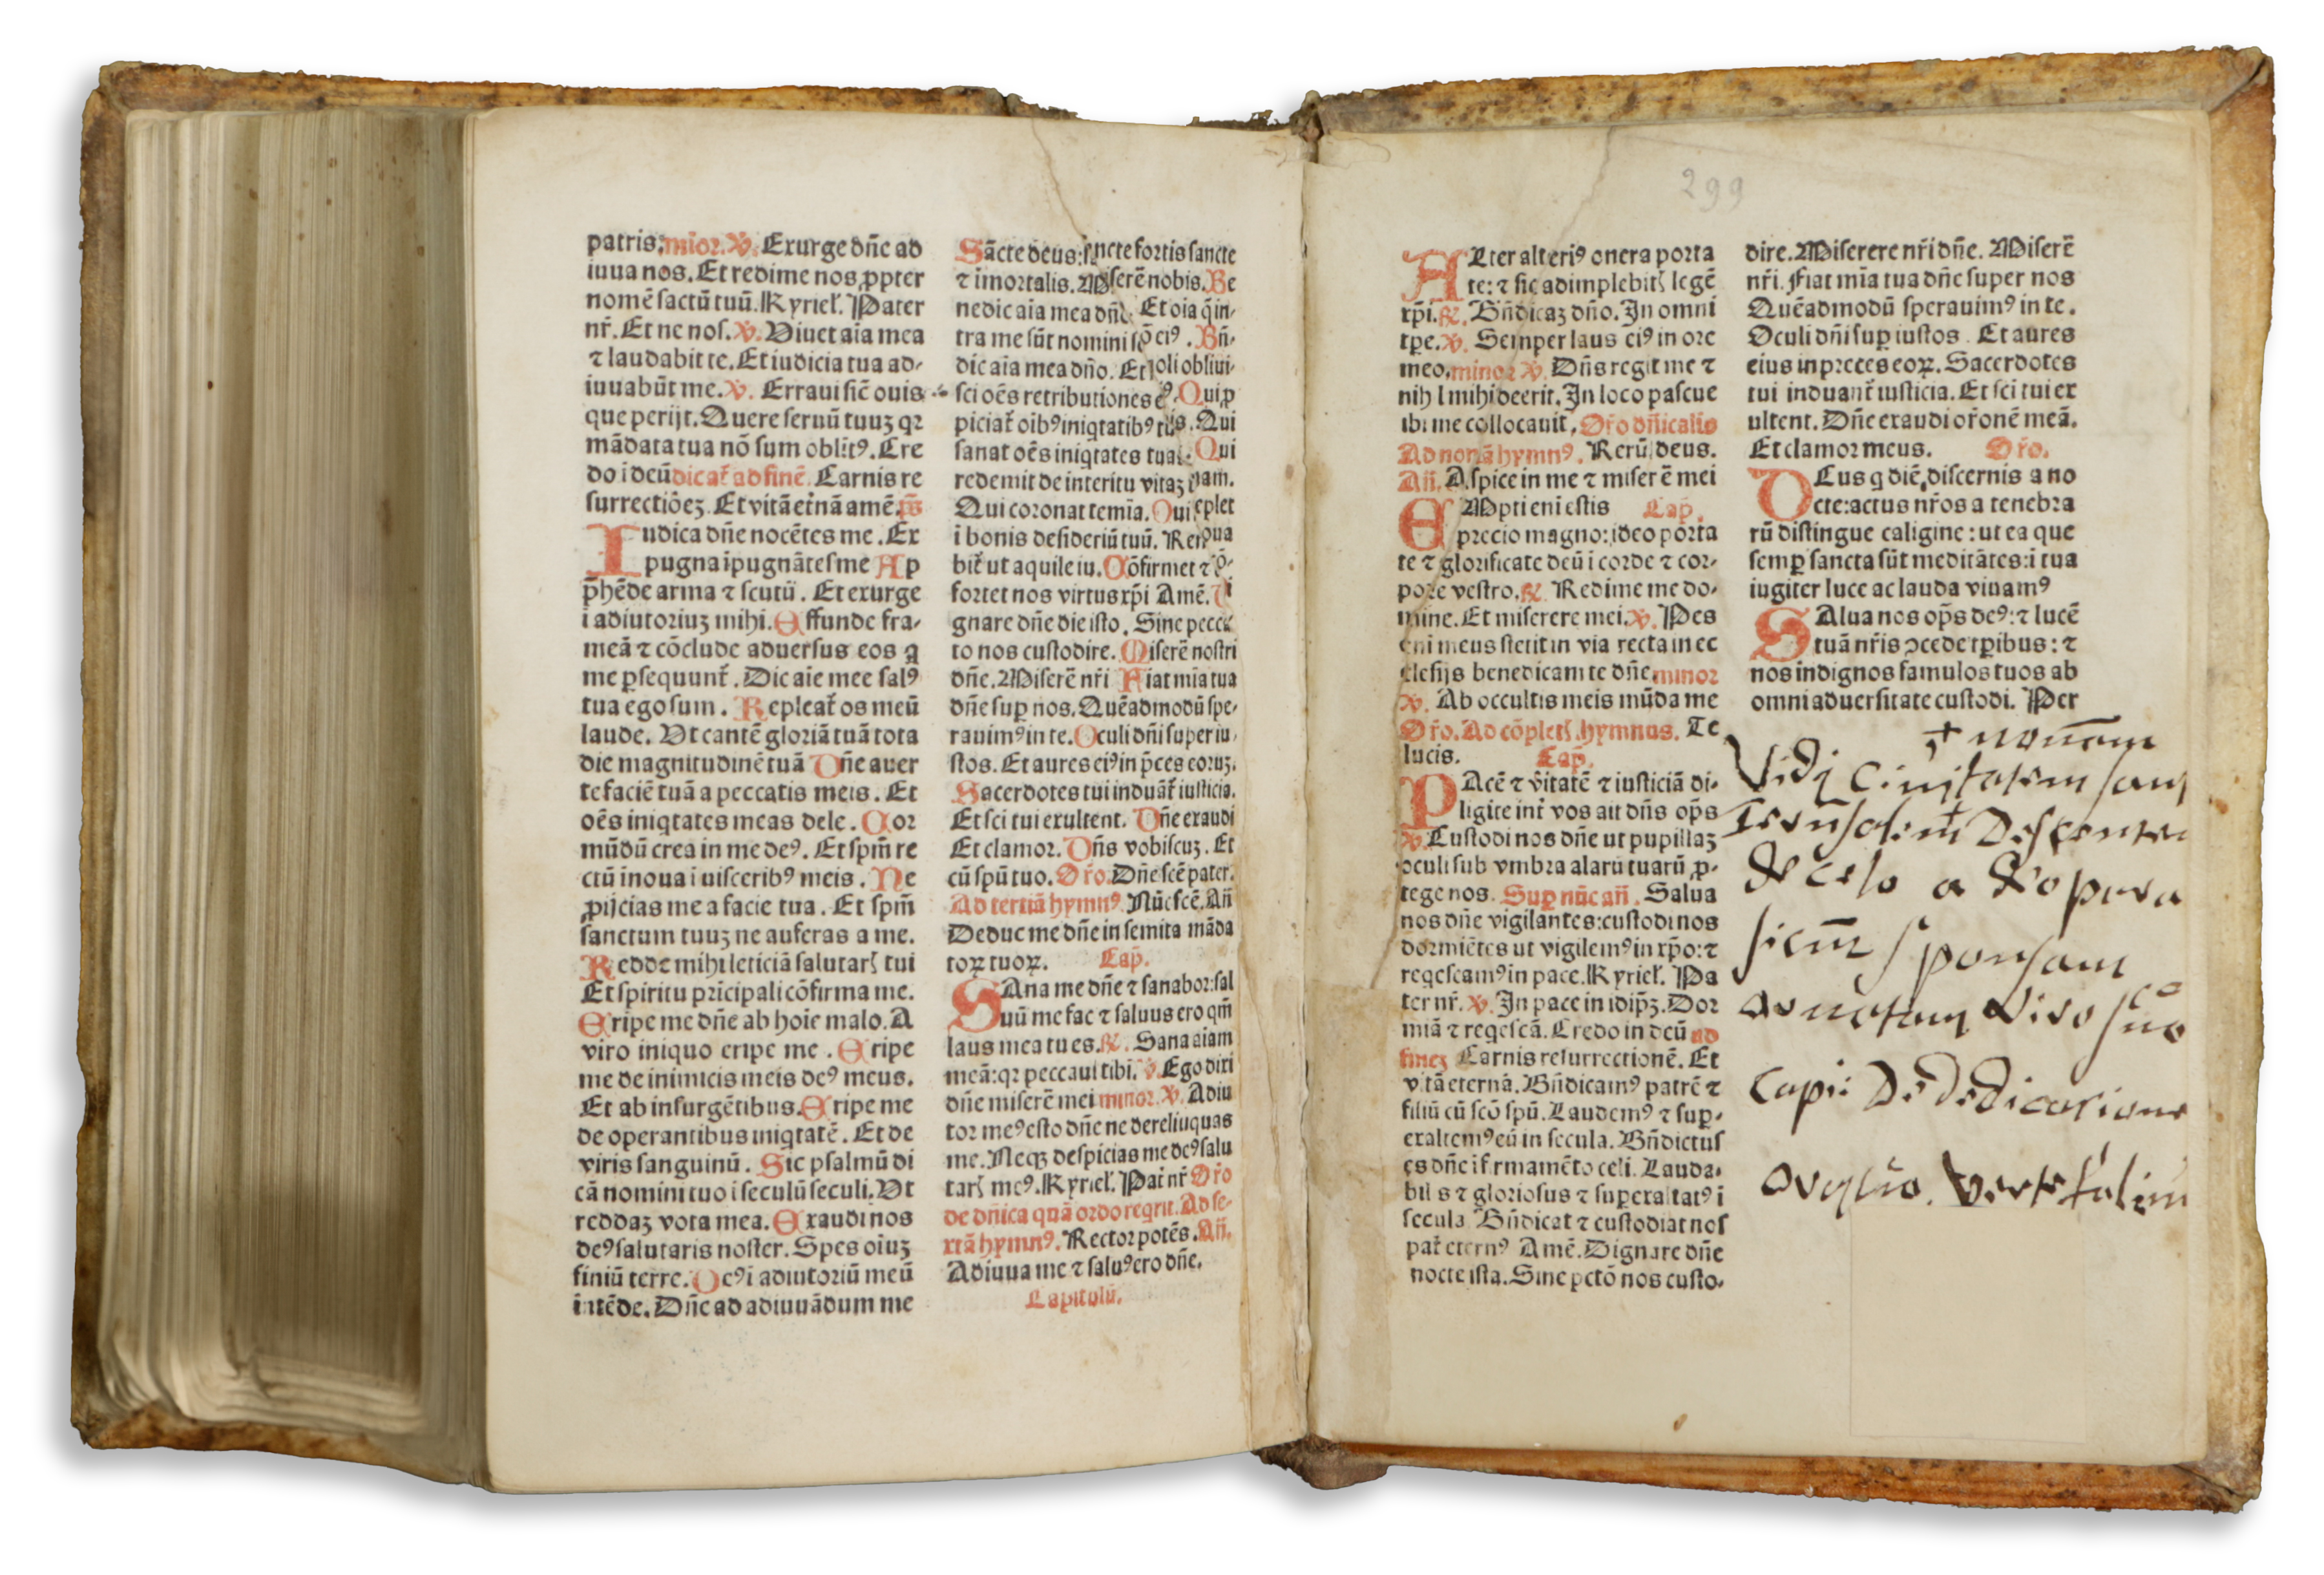 patris. mīor. ℣. Exurge dn̄e ad
iuua nos. Et redime nos ꝓpter
nomē sactū tuū. Kyrieƚ. Pater
nr̄. Et ne nos. ℣. Viuet aīa mea
⁊ laudabit te. Et iudicia tua ad⸗
iuuabūt me. ℣. Erraui sic̄ ouis
que perijt. Quere seruū tuuȝ qꝛ
mādata tua nō sum oblitꝰ. Cre
do ī deū dicat̄ ad finē. Carnis re
surrectiōeȝ. Et vitā et̄nā amē. p̄s
Iudica dn̄e nocētes me. Ex
pugna īpugnātes me Ap
p̄hēde arma ⁊ scutū. Et exurge
i adiutoriuȝ mihi. Effunde fra⸗
meā ⁊ cōclude aduersus eos q
me ꝑsequunt̄. Dic aīe mee salꝰ
tua ego sum. Repleat̄ os meū
laude. Vt cantē gloriā tuā tota
die magnitudinē tuā Dn̄e auer
te faciē tuā a peccatis meis. Et
oēs iniqtates meas dele. Cor
mūdū crea in me deꝰ. Et spm̄ re
ctū inoua i uisceribꝰ meis. Ne
ꝓijcias me a facie tua. Et spm̄
sanctum tuuȝ ne auferas a me.
Redde mihi leticiā salutarꝭ tui
Et spiritu prīcipali cōfirma me.
Eripe me dn̄e ab hoīe malo. A
viro iniquo eripe me. Eripe
me de inimicis meis deꝰ meus.
Et ab insurgētibus. Eripe me
de operantibus iniqtatē. Et de
viris sanguinū. Sic psalmū di
cā nomini tuo i seculū seculi. Vt
reddaȝ vota mea. Exaudi nos
deꝰ salutaris noster. Spes oīuȝ
finiū terre. Deꝰ i adiutoriū meū
intēde. Dn̄e ad adiuuādum me
Sācte deus: sancte fortis sancte
⁊ īmortalis. Miserē nobis. Be
nedic aīa mea dn̄o. Et oīa q̄ in⸗
tra me sūt nomini scō eiꝰ. Bn̄⸗
dic aīa mea dn̄o. Et noli obliui⸗
sci oēs retributiones eꝰ. Qui ꝓ
piciat̄ oībꝰ iniqtatibꝰ tuis. Qui
sanat oēs iniqtates tuas. Qui
redemit de interitu vitaȝ tuam.
Qui coronat te mīa. Qui replet
ī bonis desideriū tuū. Renoua
bit̄ ut aquile iu. Cōfirmet ⁊ cō⸗
fortet nos virtus xp̄i Amē. Di
gnare dn̄e die isto. Sine pecca
to nos custodire. Miserē nostri
dn̄e. Miserē nr̄i Fiat mīa tua
dn̄e suꝑ nos. Quēadmodū spe⸗
rauimꝰ in te. Oculi dn̄i super iu⸗
stos. Et aures eiꝰ in p̄ces eoruȝ.
Sacerdotes tui induāt̄ iusticia.
Et sci tui exultent. Dn̄e exaudi
Et clamor. Dn̄s vobiscuȝ. Et
cū spū tuo. Or̄o. Dn̄e scē pater.
Ad tertiā hymnꝰ. Nūc scē. Añ
Deduc me dn̄e in semita māda
toꝝ tuoꝝ. Cap̄.
SAna me dn̄e ⁊ sanabor: sal
uū me fac ⁊ saluus ero qm̄
laus mea tu es. ℟. Sana aīam
meā: qꝛ peccaui tibi. ℣. Ego dixi
dn̄e miserē mei minor. ℣. Adiu
tor meꝰ esto dn̄e ne derelinquas
me. Neqȝ despicias me deꝰ salu
tarꝭ meꝰ. Kyrieƚ. Pat̄ nr̄ Or̄o
de dn̄ica quā ordo reqrit. Ad se⸗
xtā hymnꝰ. Rector potēs. Añ.
Adiuua me ⁊ saluꝰ ero dn̄e.
Capitulū.
299
ALter alteriꝰ onera porta
te: ⁊ sic adimplebitꝭ legē
xp̄i. ℟. Bn̄dicaȝ dn̄o. In omni
tp̄e. ℣. Semper laus eiꝰ in ore
meo. minor ℣. Dn̄s regit me ⁊
nihl mihi deerit. In loco pascue
ibi me collocauit. Or̄o dn̄icalis
Ad nonā hymnꝰ. Rerū deus.
Añ. Aspice in me ⁊ miserē mei
EMpti eni estis Cap̄.
precio magno: ideo porta
te ⁊ glorificate deū i corde ⁊ cor⸗
pore vestro. ℟. Redime me do⸗
mine. Et miserere mei. ℣. Pes
eni meus stetit in via recta in ec
clesijs benedicam te dn̄e. minor
℣. Ab occultis meis mūda me
Or̄o. Ad cōpletꝭ. hymnus. Te
lucis. Cap̄.
PAcē ⁊ v̄itatē ⁊ iusticiā di⸗
ligite int̄ vos ait dn̄s op̄s
℣. Custodi nos dn̄e ut pupillaȝ
oculi sub vmbra alarū tuarū ꝓ⸗
tege nos. Suꝑ nūc añ. Salua
nos dn̄e vigilantes: custodi nos
dormiētes ut vigilemꝰ in xp̄o: ⁊
reqescamꝰ in pace. Kyrieƚ. Pa
ter nr̄. ℣. In pace in idip̄ȝ. Dor
miā ⁊ reqescā. Credo in deū ad
fineȝ Carnis resurrectionē. Et
vitā eternā. Bn̄dicamꝰ patrē ⁊
filiū cū scō spū. Laudemꝰ ⁊ suꝑ⸗
exaltemꝰ eū in secula. Bn̄dictus
es dn̄e i firmamēto celi. Lauda⸗
bilis ⁊ gloriosus ⁊ suꝑexaltatꝰ i
secula. Bn̄dicat ⁊ custodiat nos
pat̄ eternꝰ Amē. Dignare dn̄e
nocte ista. Sine pctō nos custo⸗
dire. Miserere nr̄i dn̄e. Miserē
nr̄i. Fiat mīa tua dn̄e super nos
Quēadmodū sperauimꝰ in te.
Oculi dn̄i suꝑ iustos. Et aures
eius in preces eoꝝ. Sacerdotes
tui induant̄ iusticia. Et sci tui ex
ultent. Dn̄e exaudi or̄onē meā.
Et clamor meus. Or̄o.
DEus q diē discernis a no
cte: actus nr̄os a tenebra
rū distingue caligine: ut ea que
semꝑ sancta sūt meditātes: i tua
iugiter luce ac lauda viuamꝰ
SAlua nos op̄s deꝰ: ⁊ lucē
tuā nr̄is ꝯcede tp̄ibus: ⁊
nos indignos famulos tuos ab
omni aduersitate custodi. Per
+ nouam
Vidj Ciuitatem san
Ierusalem Descenden
de celo a deo para
sicut sponsam
ornatam viro suo
Capi: De dedicatione